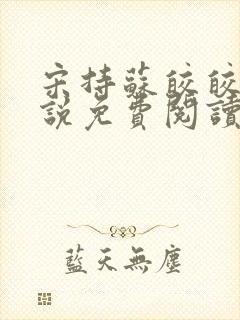 宋持蘇皎皎
說免費閱讀
藍天無塵